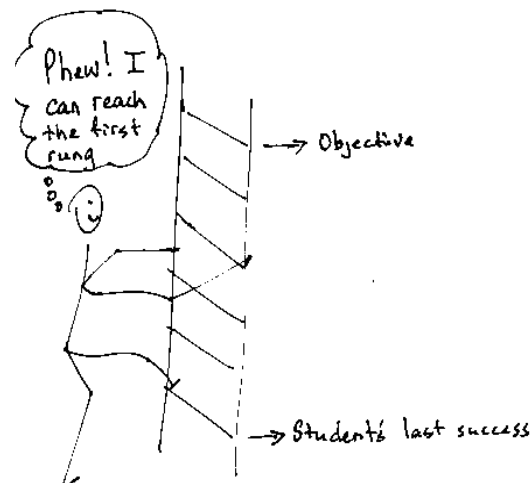 Phew! I
can reach
the first
rung
→ Objective
→ Student's last success